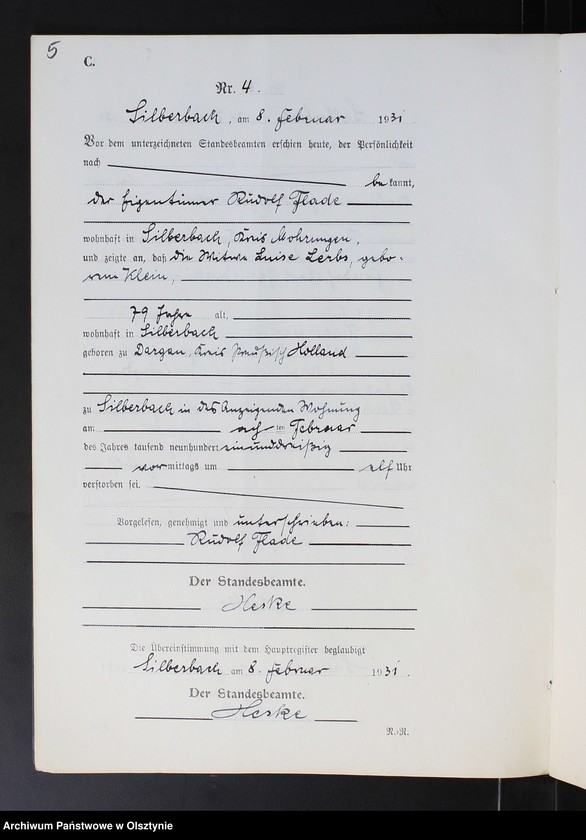 5
C.
Nr. 4.
Silberbach, am 8. Februar 1931
Vor dem unterzeichneten Standesbeamten erschien heute, der Persönlichkeit
nach
bekannt,
der Eigentümer Rudolf Flade
wohnhaft in Silberbach, Kreis Mohrungen,
und zeigte an, daß die Witwe Luise Lerbs, gebo-
rene Klein,
79 Jahre alt,
wohnhaft in Silberbach
geboren zu Dargau, Kreis Preußisch Holland
zu Silberbach in des Anzeigenden Wohnung
am acht ten Februar
des Jahres tausend neunhundert einunddreißig
vormittags um elf Uhr
verstorben sei.
Vorgelesen, genehmigt und unterschrieben:
Rudolf Flade
Der Standesbeamte.
Heske
Die Übereinstimmung mit dem Hauptregister beglaubigt
Silberbach am 8. Februar 1931.
Der Standesbeamte.
Heske
R.-R.
Archiwum Państwowe w Olsztynie